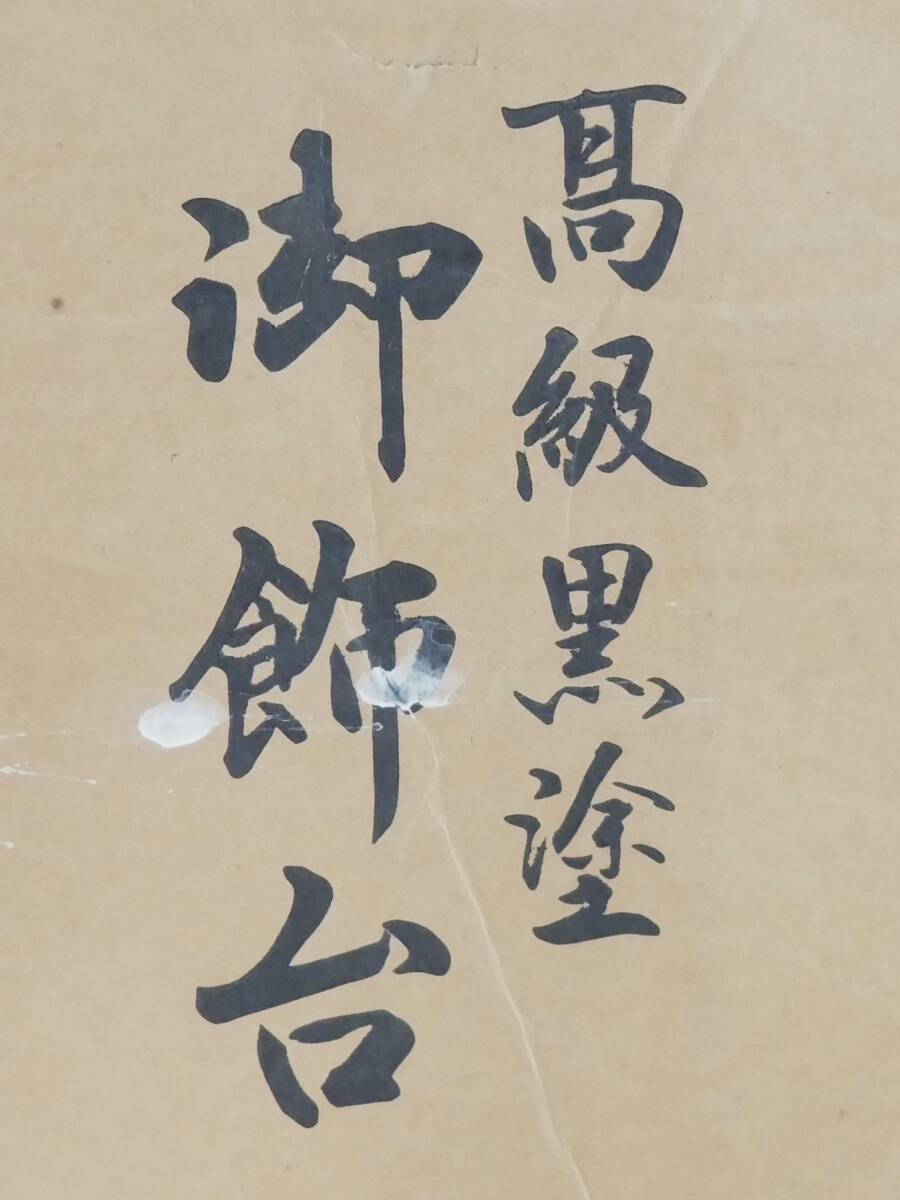 髙級黒塗
御飾台